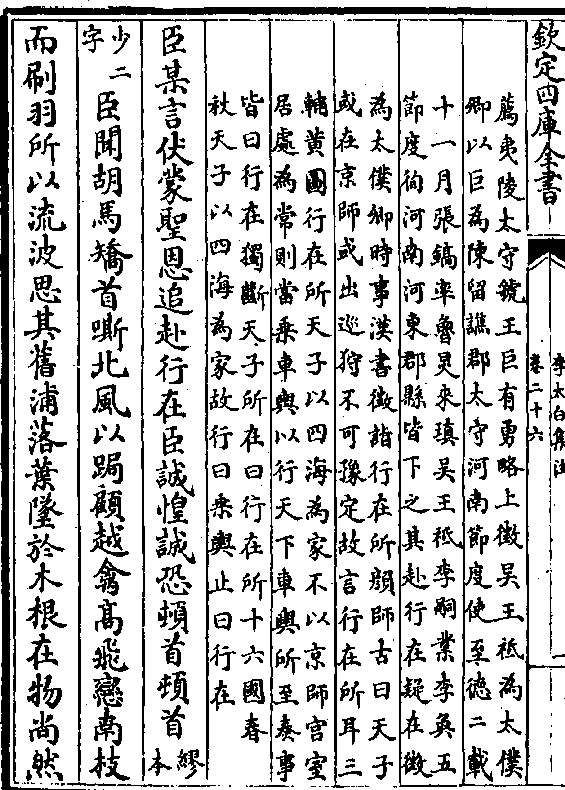 欽定四庫全書
李太白集注
卷二十六
一
薦夷陵太守虢王巨有勇略上徵吳王祗為太僕
卿以巨為陳留譙郡太守河南節度使至德二載
十一月張鎬率魯炅來瑱吳王祗李嗣業李奐五
節度徇河南河東郡縣皆下之其赴行在疑在徵
為太僕卿時事漢書徵詣行在所顏師古曰天子
或在京師或出巡狩不可豫定故言行在所耳三
輔黃圖行在所天子以四海為家不以京師宮室
居處為常則當乘車輿以行天下車輿所至奏事
皆曰行在獨斷天子所在曰行在所十六國春
秋天子以四海為家故行曰乘輿止曰行在
臣某言伏蒙聖恩追赴行在臣誠惶誠恐頓首頓首繆本
少二字臣聞胡馬矯首嘶北風以跼顧越禽高飛戀南枝
而刷羽所以流波思其舊浦落葉墜於本根在物尚然